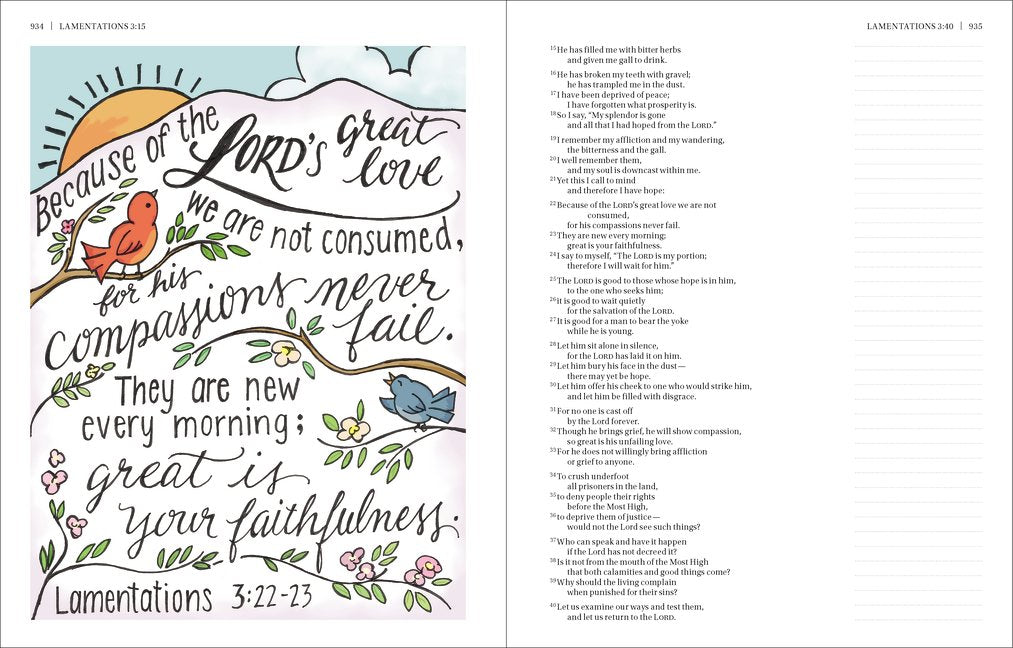 934 | LAMENTATIONS 3:15
Because of the
LORD's great
love
we are not consumed,
for his
compassions never
fail.
They are new
every morning;
great is
your faithfulness.
Lamentations 3:22-23
LAMENTATIONS 3:40 | 935
15He has filled me with bitter herbs
and given me gall to drink.
16He has broken my teeth with gravel;
he has trampled me in the dust.
17I have been deprived of peace;
I have forgotten what prosperity is.
18So I say, “My splendor is gone
and all that I had hoped from the LORD.”
19I remember my affliction and my wandering,
the bitterness and the gall.
20I well remember them,
and my soul is downcast within me.
21Yet this I call to mind
and therefore I have hope:
22Because of the LORD’s great love we are not
consumed,
for his compassions never fail.
23They are new every morning;
great is your faithfulness.
24I say to myself, “The LORD is my portion;
therefore I will wait for him.”
25The LORD is good to those whose hope is in him,
to the one who seeks him;
26it is good to wait quietly
for the salvation of the LORD.
27It is good for a man to bear the yoke
while he is young.
28Let him sit alone in silence,
for the LORD has laid it on him.
29Let him bury his face in the dust—
there may yet be hope.
30Let him offer his cheek to one who would strike him,
and let him be filled with disgrace.
31For no one is cast off
by the Lord forever.
32Though he brings grief, he will show compassion,
so great is his unfailing love.
33For he does not willingly bring affliction
or grief to anyone.
34To crush underfoot
all prisoners in the land,
35to deny people their rights
before the Most High,
36to deprive them of justice—
would not the Lord see such things?
37Who can speak and have it happen
if the Lord has not decreed it?
38Is it not from the mouth of the Most High
that both calamities and good things come?
39Why should the living complain
when punished for their sins?
40Let us examine our ways and test them,
and let us return to the LORD.